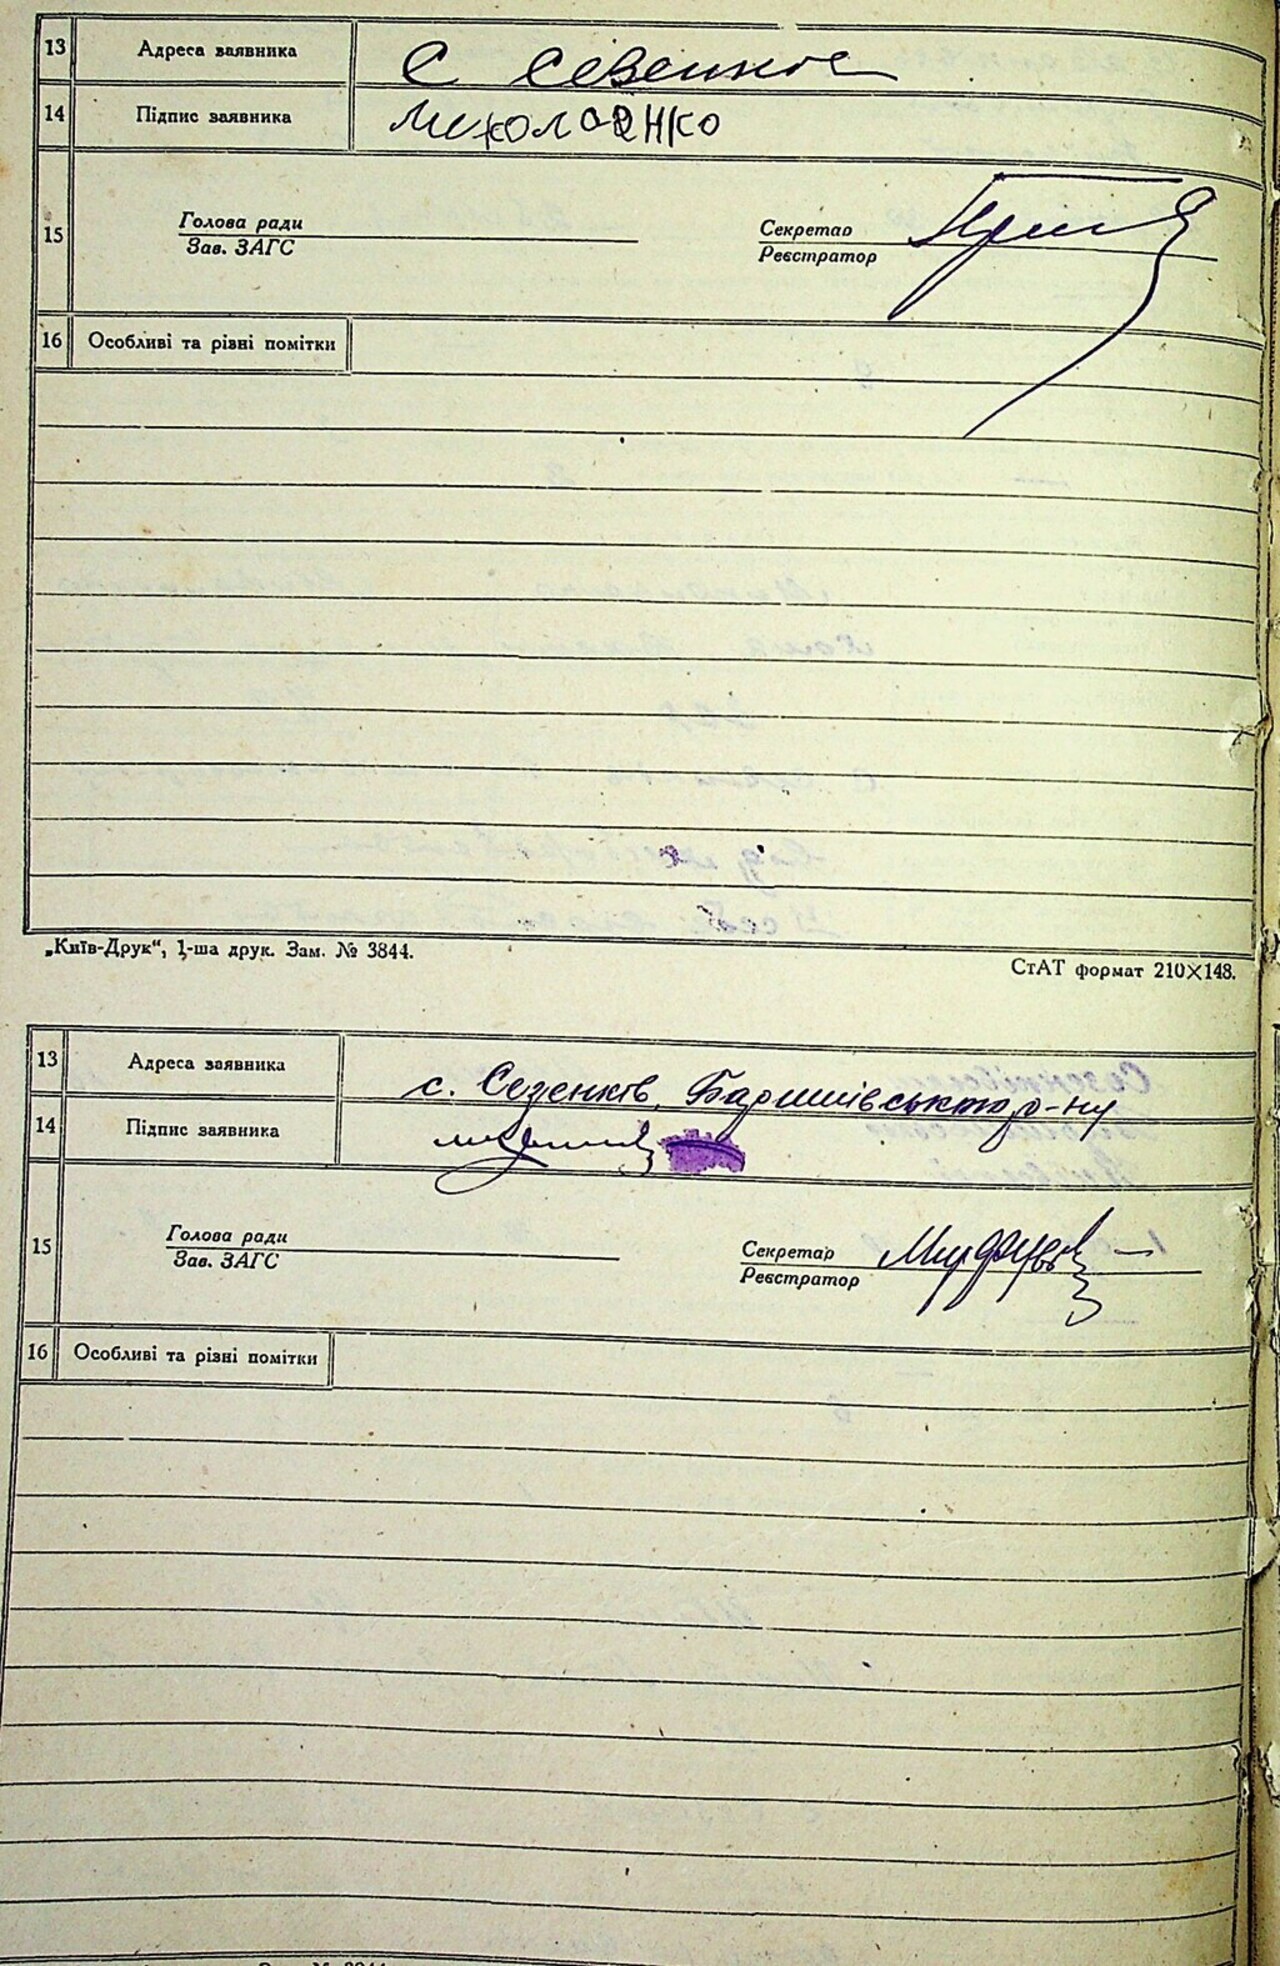 13 Адреса заявника
14 Підпис заявника миколаенко
15 Голова ради Секретар
Зав. ЗАГС Реєстратор
16 Особливі та різні помітки
„Київ-Друк“, 1-ша друк. Зам. № 3844.
СтАТ формат 210×148.
13 Адреса заявника с. Сезенків, Баришівського р-ну
14 Підпис заявника
15 Голова ради Секретар
Зав. ЗАГС Реєстратор
16 Особливі та різні помітки